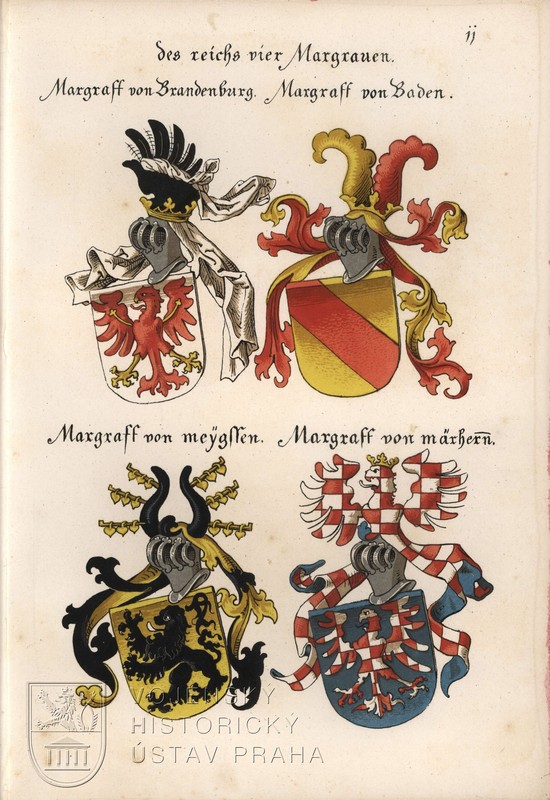 ij
des reichs vier Margrauen.
Margraff von Brandenburg. Margraff von Baden.
Margraff von meÿgssen. Margraff von märhern̅.
VOJENSKÝ
HISTORICKÝ
ÚSTAV PRAHA